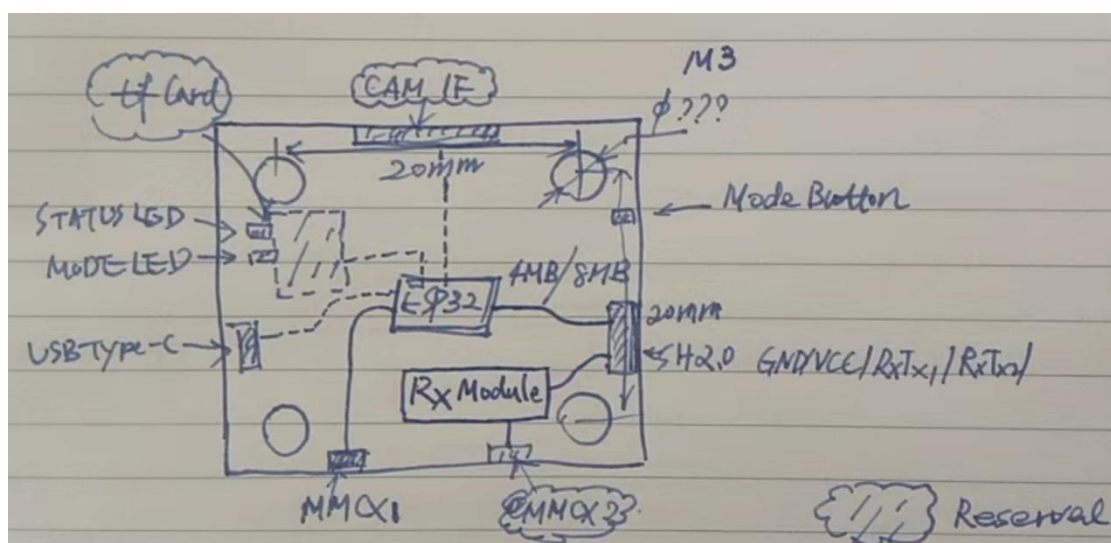 M3
tf Card
CAM IF
ϕ???
20mm
Mode Button
STATUS LED
MODE LED
4MB/8MB
ESP32
20mm
USB Type-C
SH2.0 GND/VCC/RxTx1/RxTx2/
Rx Module
MMCX1
MMCX2
Reserval